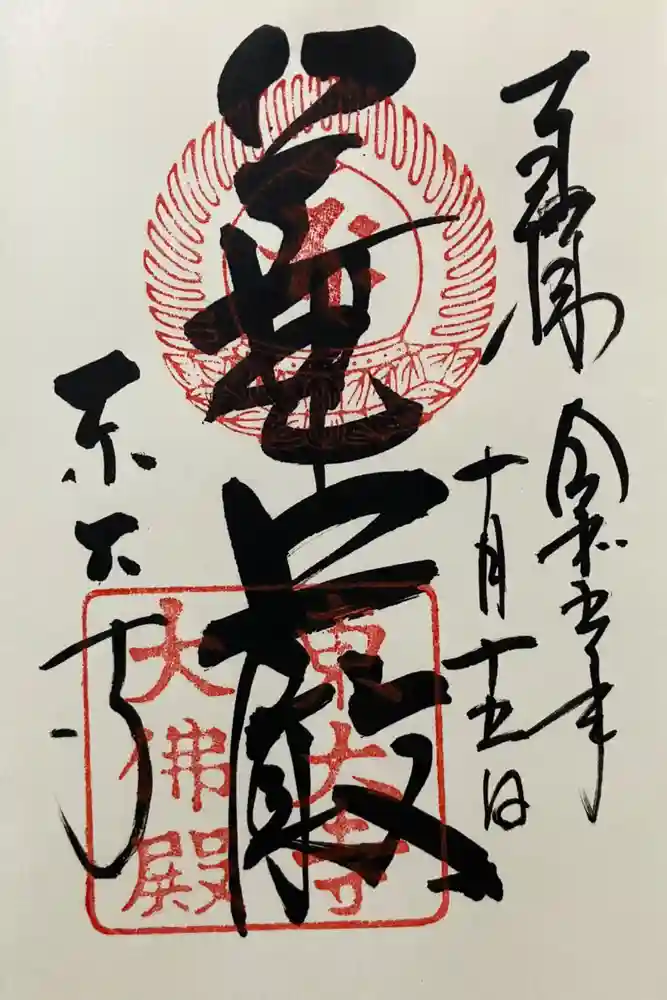 奉拝
令和五年
十月十五日
華厳
東大寺
東大寺
大佛殿